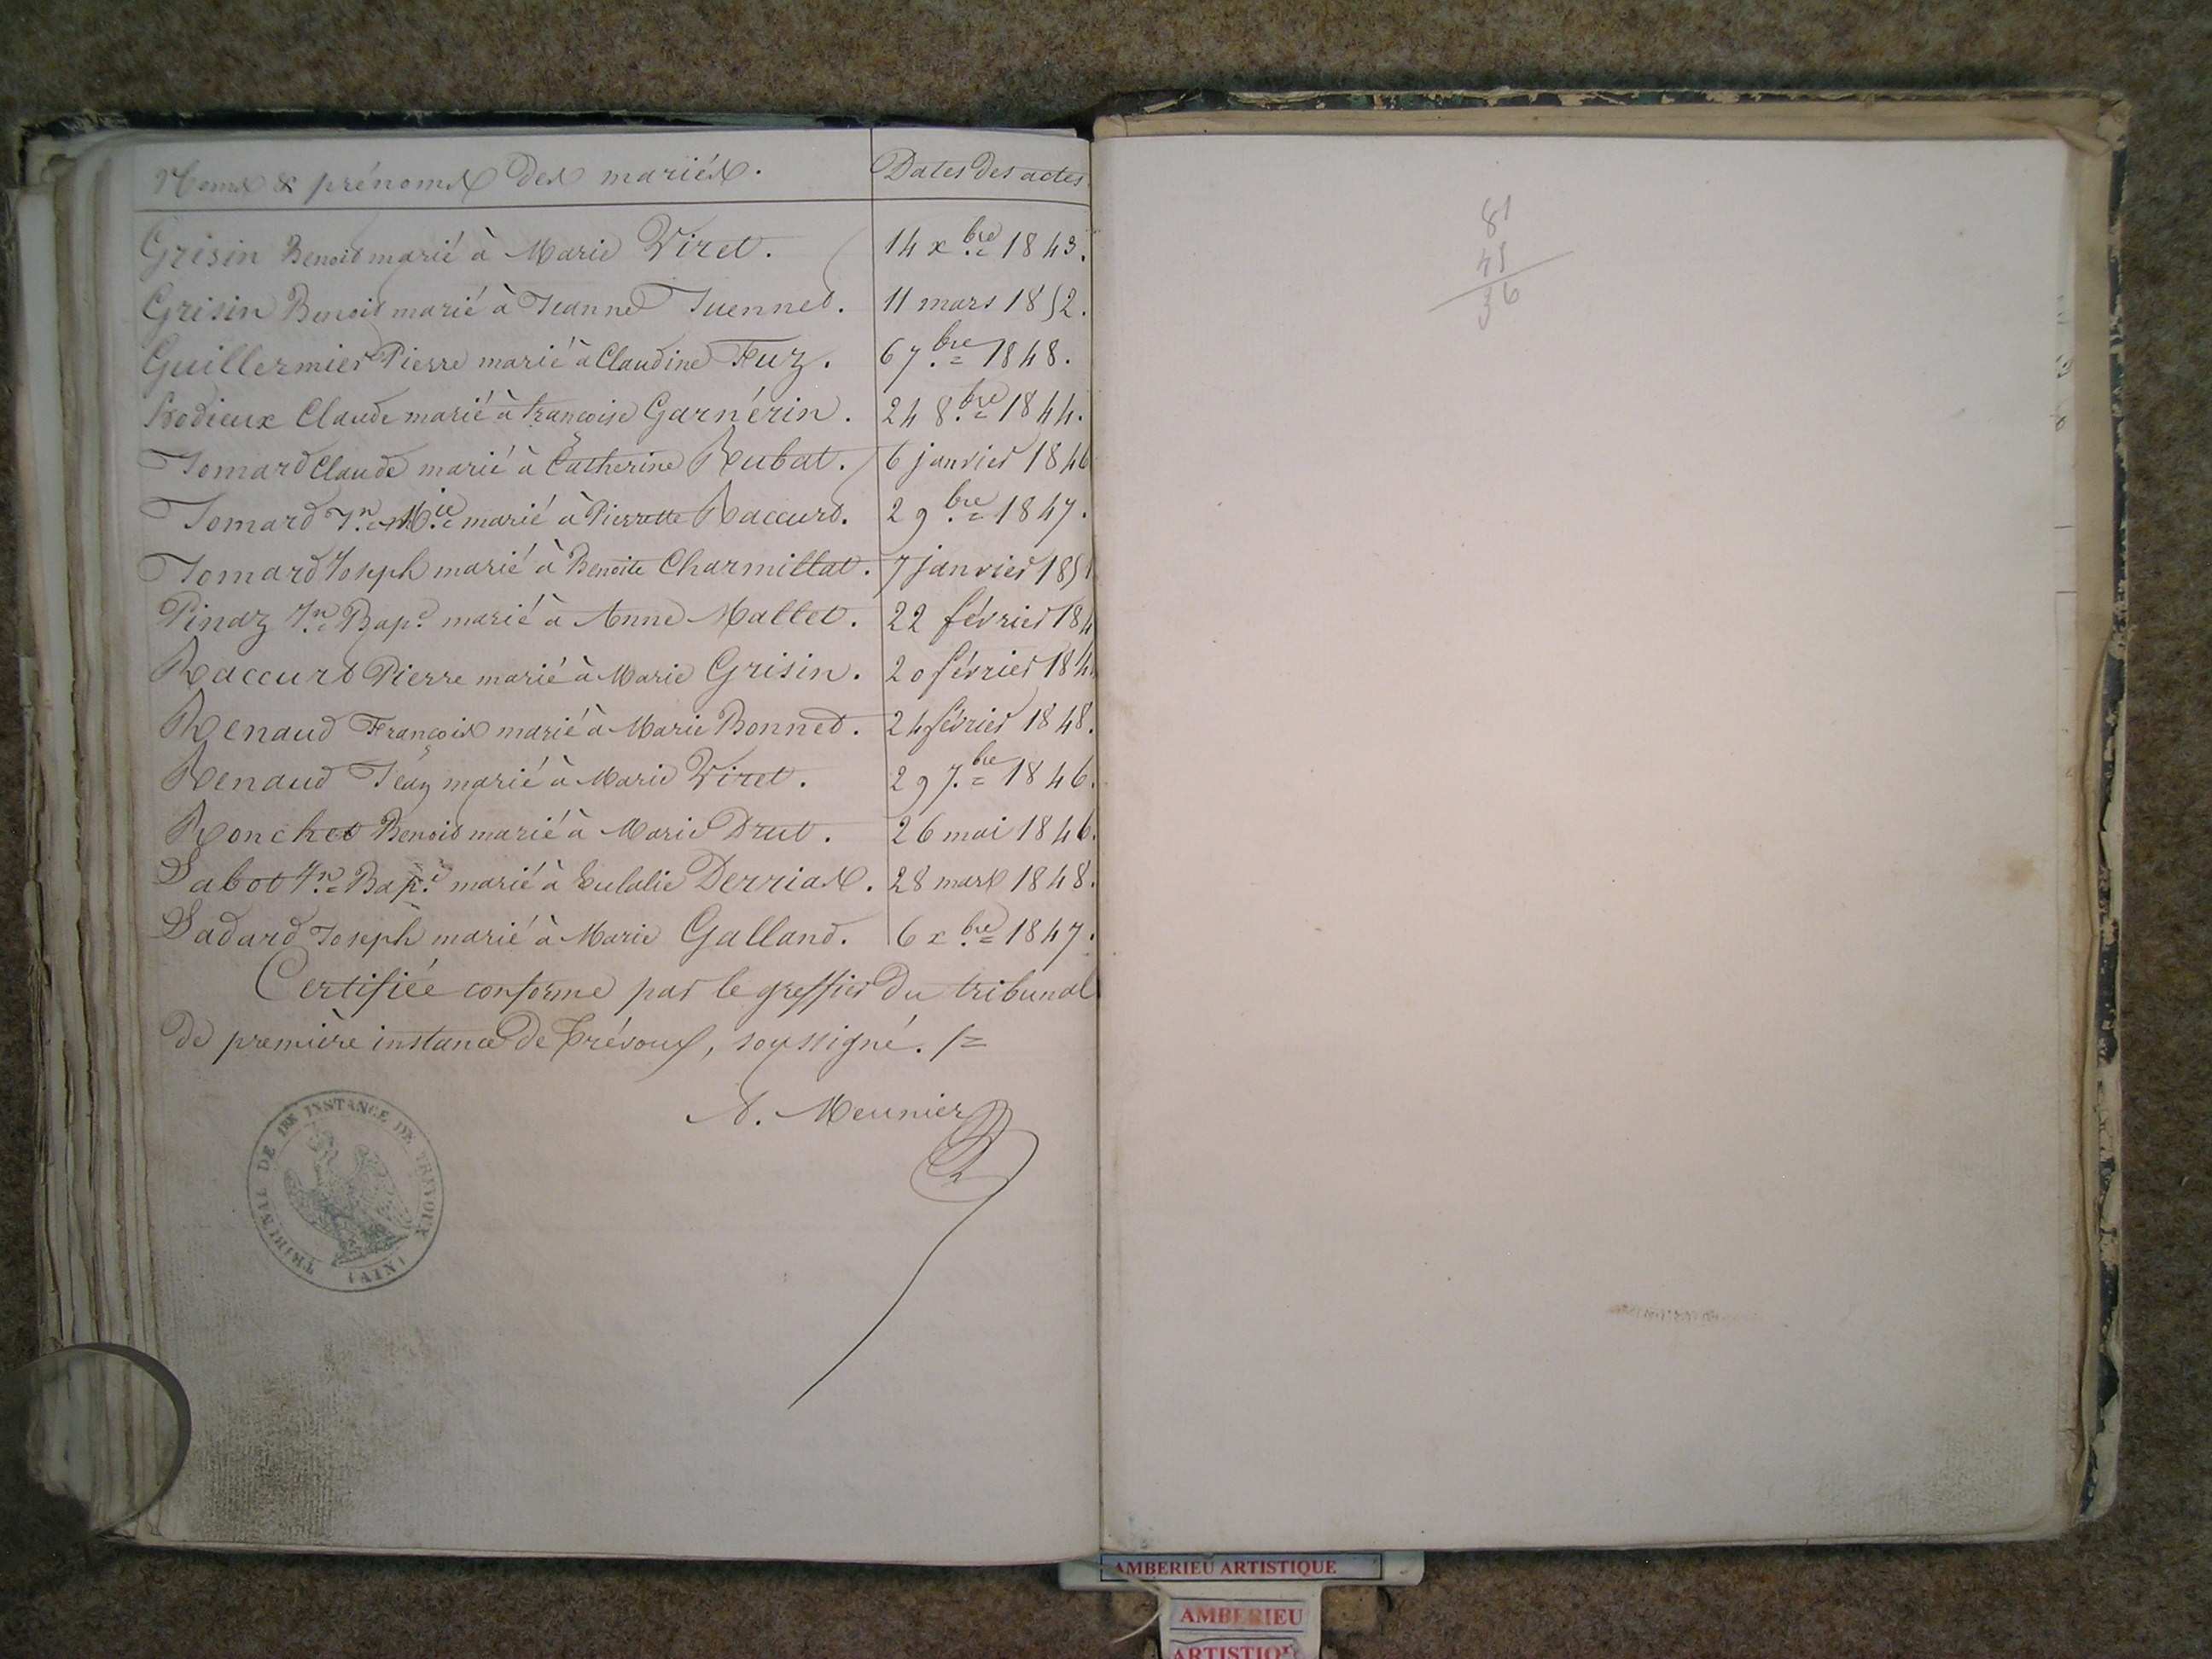 Noms & prénoms des mariés. Dates des actes
Grisin Benoit marié à Marie Viret. 14 xbre 1843.
Grisin Benoit marié à Jeanne Juennet. 11 mars 1852.
Guillermier Pierre marié à Claudine Fuz. 6 7bre 1848.
Claude marié à françoise Garnérin. 24 8bre 1844.
Jomard Claude marié à Catherine Rubat. 6 janvier 1846
Jomard Jn Mie marié à Pierrette Raccurt. 2 9bre 1847.
Jomard Joseph marié à Benoite Charmillat. 7 janvier 1851
Pinaz Jn Bape marié à Anne Mallet. 22 février 184
Raccurt Pierre marié à Marie Grisin. 20 février 184
Renaud François marié à Marie Bonnet. 24 février 1848.
Renaud Jean marié à Marie Viret. 29 7bre 1846.
Ronchet Benoit marié à Marie Drut. 26 mai 1846.
Sabot Jn Bape marié à Eulalie Derrias. 28 mars 1848.
Sadard Joseph marié à Marie Galland. 6 xbre 1847.
Certifiée conforme par le greffier du tribunal
de première instance de Trévoux, soussigné. /=
A. Meunier
TRIBUNAL DE 1RE INSTANCE DE TREVOUX (AIN)
81
45
36
AMBERIEU ARTISTIQUE
AMBERIEU
ARTISTIQUE